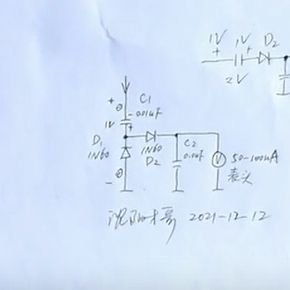 1V 1V D2
+ +
2V
+ C1
.01uF
1V +
D1
1N60
1N60
D2
C2
0.1uF
V
50-100uA
表头
-
沈阳 哥 2021-12-12